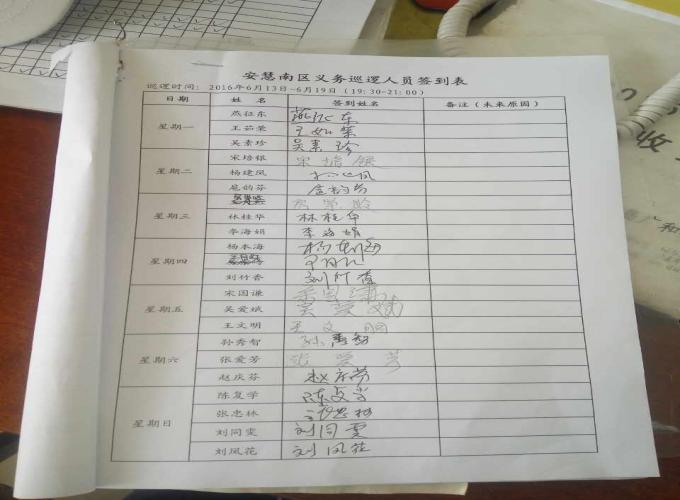 安慧南区义务巡逻人员签到表
巡逻时间: 2016年6月13日~6月19日 (19:30-21:00)
日期 姓 名 签到姓名 备注 (未来原因)
星期一 燕征东 燕征东
王茹荣 王如荣
吴素珍 吴素珍
星期二 宋培银 宋培银
杨建凤
扈韵芬
星期三
林桂华 林桂华
李海娟 李海娟
星期四 杨本海 杨本海
刘竹香 刘竹香
星期五 宋国谦 宋国谦
吴爱斌 吴爱斌
王文明 王文明
星期六 孙秀智 孙秀智
张爱芳 张爱芳
赵庆芬 赵庆芬
星期日 陈复学 陈复学
张忠林 张忠林
刘同雯 刘同雯
刘凤花 刘凤花
收
和